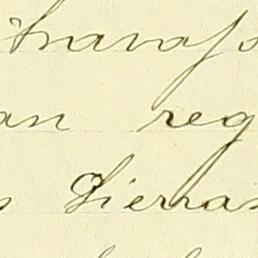 travaso
an reg
s Sierras